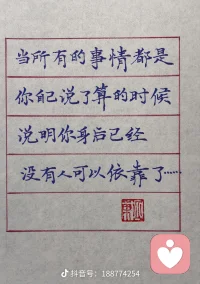 当所有的事情都是
你自己说了算的时候
说明你身后已经
没有人可以依靠了……
抖音号：188774254